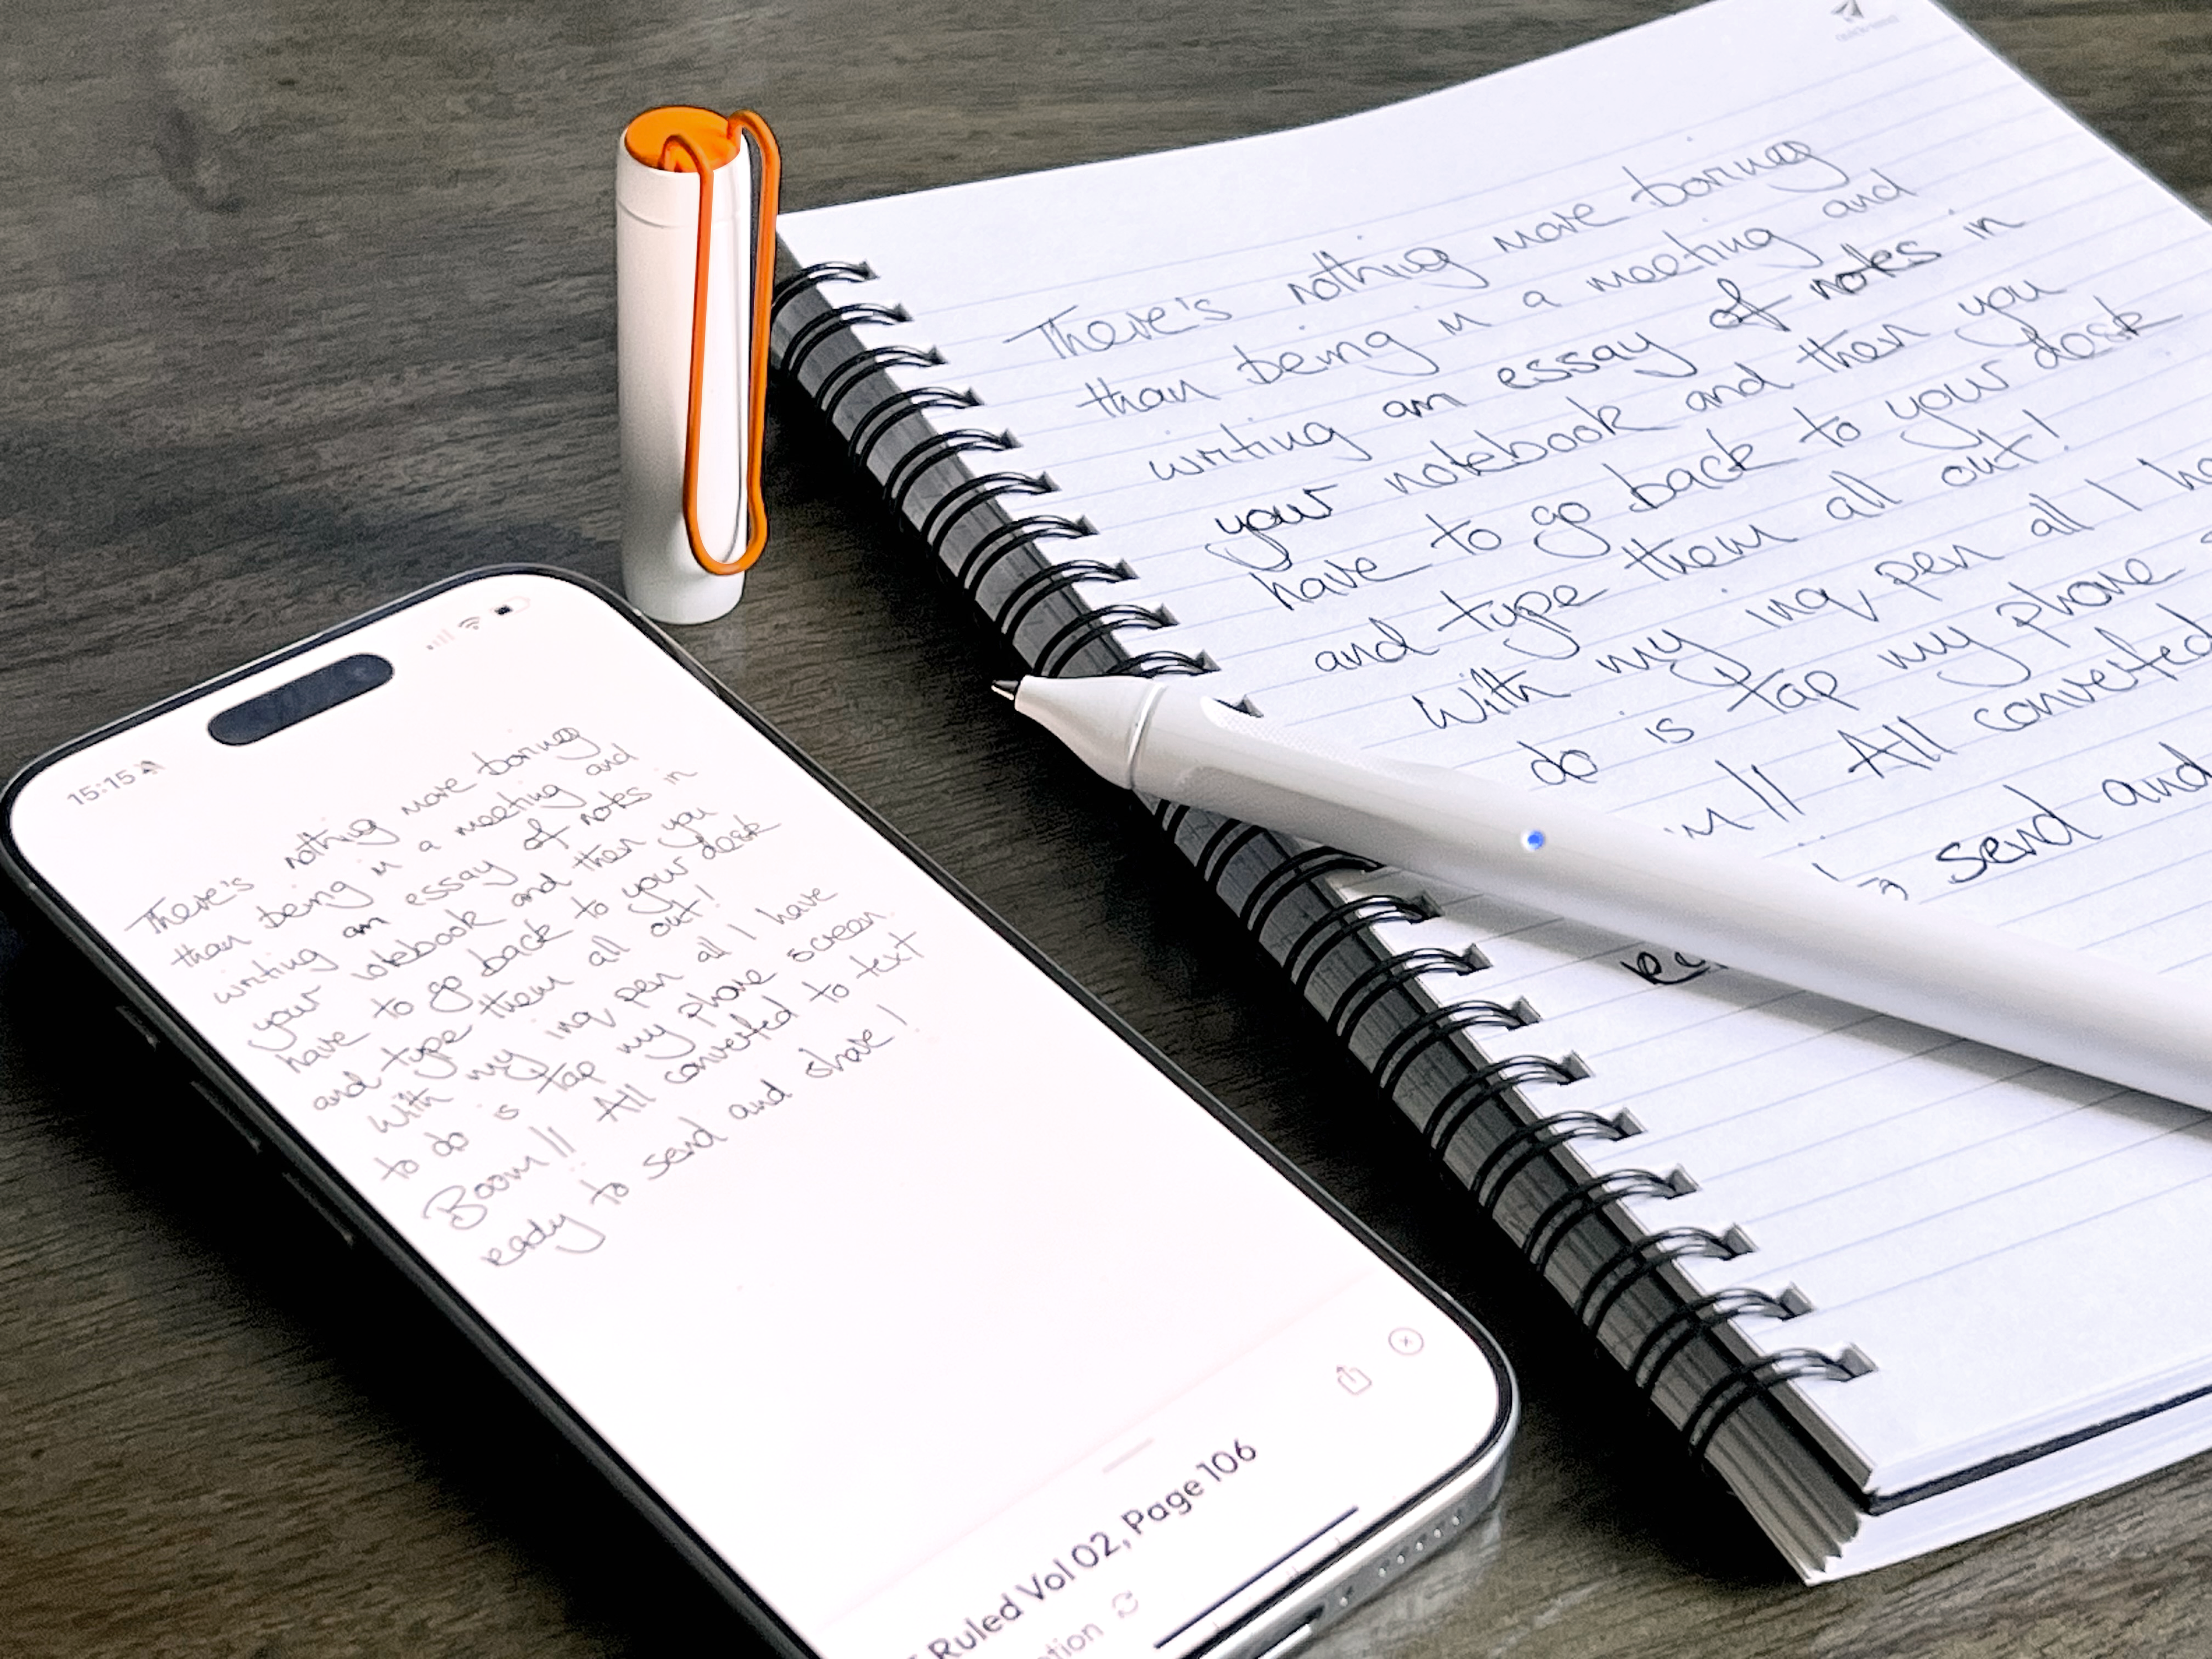 15:15
There's nothing more boring
than being in a meeting and
writing an essay of notes in
your notebook and then you
have to go back to your desk
and type them all out!
With my inq pen all I have
to do is tap my phone screen
Boom!! All converted to text
ready to send and share!
Ruled Vol 02, Page 106
There's nothing more boring
than being in a meeting and
writing an essay of notes in
your notebook and then you
have to go back to your desk
and type them all out!
With my inq pen all I ha
do is tap my phone
m!! All converted
send and